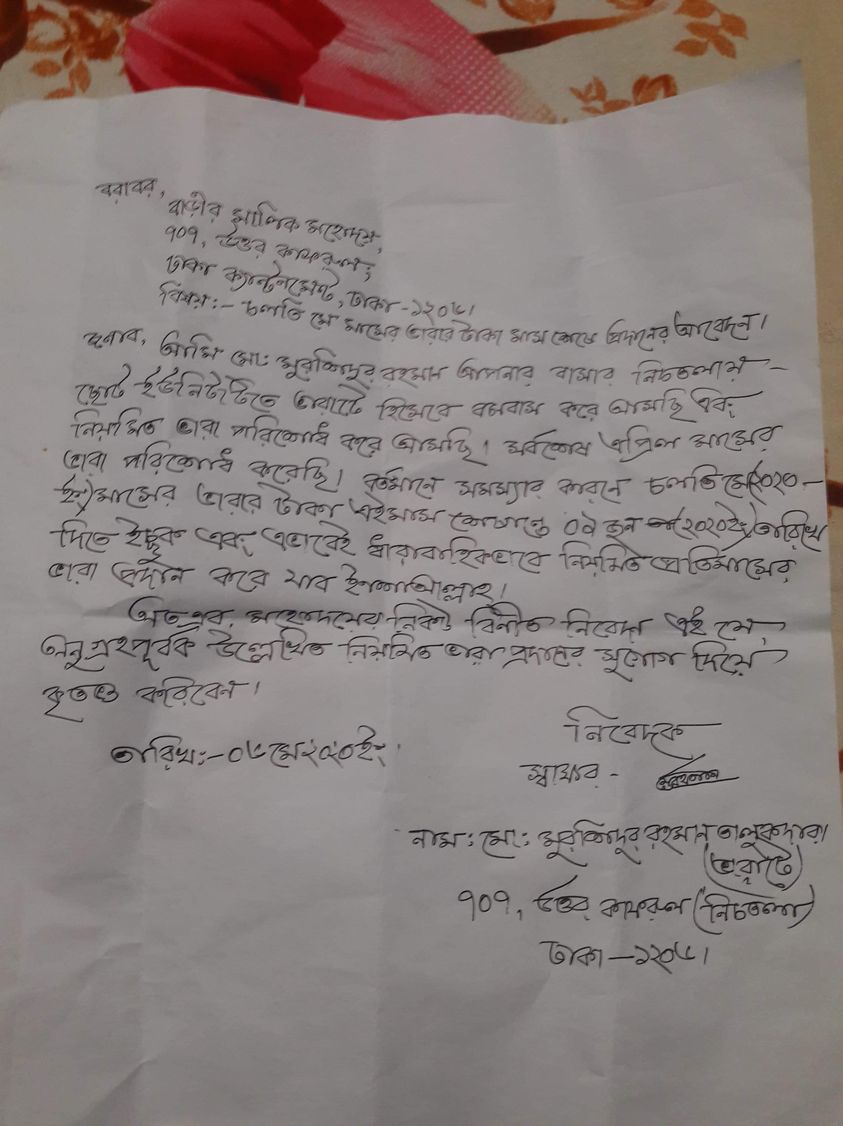 বরাবর,
বাড়ীর মালিক মহোদয়,
৭০৭, উত্তর কাফরুল,
ঢাকা ক্যান্টনমেন্ট, ঢাকা-১২০৬।
বিষয়:- চলতি মে মাসের ভারার টাকা মাস শেষে প্রদানের আবেদন।
জনাব, আমি মো: মুরশিদুর রহমান আপনার বাসার নিচতলায়-
ছোট ইউনিটটিতে ভারাটে হিসেবে বসবাস করে আসছি এবং
নিয়মিত ভারা পরিশোধ করে আসছি। সর্বশেষ এপ্রিল মাসের
ভারা পরিশোধ করেছি। বর্তমানে সমস্যার কারনে চলতি মে(২০২০-
ইং)মাসের ভারার টাকা এই মাস শেষান্তে জুন ২০২০ইং)তারিখে
দিতে ইচ্ছুক এবং এভাবেই ধারাবাহিকভাবে নিয়মিত প্রতিমাসের
ভারা প্রদান করে যাব ইনশাআল্লাহ।
অতএব, মহোদয়ের নিকট বিনীত নিবেদন এই যে,
অনুগ্রহপূর্বক উল্লেখিত নিয়মিত ভারা প্রদানের সুযোগ দিয়ে
কৃতজ্ঞ করিবেন।
নিবেদক
তারিখ:-০৬ মে ২০২০ইং
স্বাক্ষর -
নাম: মো: মুরশিদুর রহমান তালুকদার।
(ভারাটে)
৭০৭, উত্তর কাফরুল (নিচতলা)
ঢাকা-১২০৬।